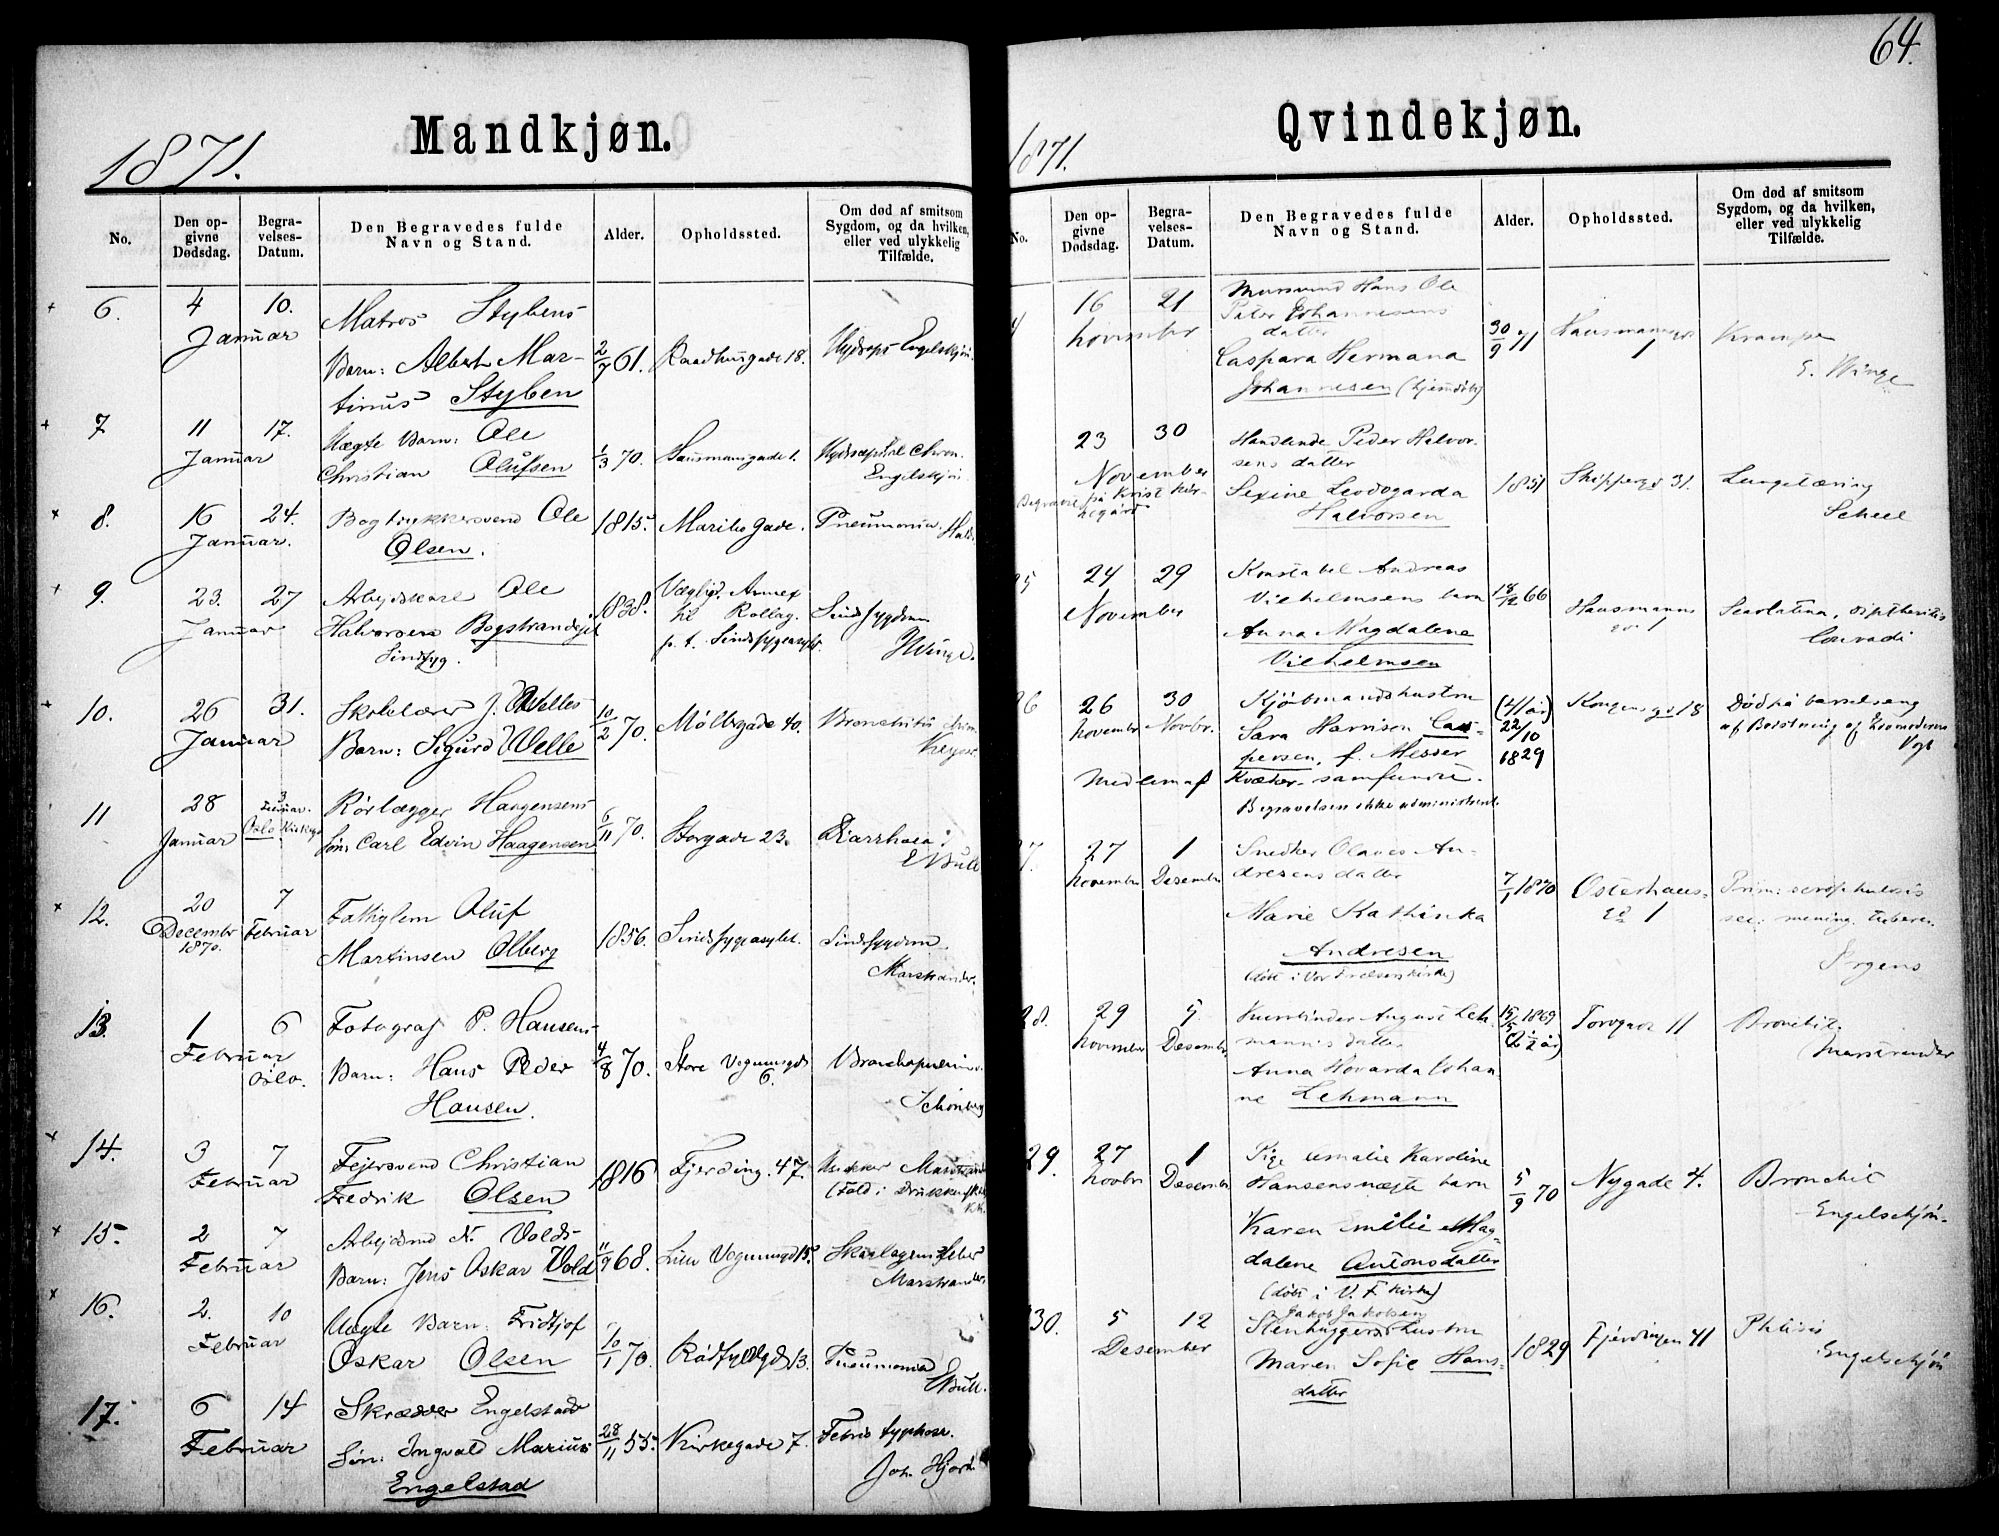 64.
1871.
Mandkjøn.
No.
Den op-
givne
Dødsdag.
Begra-
velses-
Datum.
Den Begravedes fulde
Navn og Stand.
Alder.
Opholdssted.
Om død af smitsom
Sygdom, og da hvilken,
eller ved ulykkelig
Tilfælde.
6.
4
Januar
10.
Matros Stybens
Barn: Albert Mar-
tinus Styben
2/7 61.
Raadhusgade 18.
Hydrops Engelskjøn.
7
11
Januar
17.
Uægte Barn: Ole
Christian Olufsen
1/3 70.
Hausmansgade 1.
Engelskjøn
8.
16
Januar.
24.
Bogtrykkersvend Ole
Olsen.
1815.
Maribogade.
Pneumonia.
9.
23.
Januar
27
Arbejdskarl Ole
Halvorsen Bogstrandejet
Sindssyg.
1838.
til Rollag.
p. t. Sindssygeasylet.
Sindssygdom
Winge.
10.
26
Januar
31.
Skolelærer J. Welles
Barn: Sigurd Welle
10/2 70.
Møllergade 40.
Bronchitis
Keyser.
11
28
Januar
3
Februar.
Oslo Kirkeg.
Rørlægger Haagensens
Søn: Carl Edvin Haagensen
6/11 70.
Storgade 23.
Diarrhoea:
E Bull
12.
20
Decembr
1870.
7
Februar
Fattiglem Oluf
Martinsen Olberg
1856.
Sindssygeasylet.
Sindssygdom.
Marstrander.
13.
1
Februar
6
Oslo.
Fotograf P. Hansens
Barn: Hans Peder
Hansen.
4/8 70.
Store Vognmsgd
6.
Schönberg
14.
3
Februar
7
Fejersvend Christian
Fredrik Olsen
1816
Fjerding. 47.
15.
2
Februar
7
Arbejdsmd N. Volds
Barn: Jens Oskar Vold
11/9 68.
Lille Vognmsgd 15.
Skarlagensfeber
Marstrander.
16.
2.
Februar
10
Uægte Barn: Fridtjof
Oskar Olsen
10/1 70.
Rødfyldgd 13.
Pneumonia
E Bull.
17.
6
Februar
14
Skrædder Engelstads
Søn: Ingvald Marius
Engelstad
28/11 55.
Kirkegade 7.
Febris typhosa.
Joh. Hjort.
1871.
Qvindekjøn.
No.
Den op-
givne
Dødsdag.
Begra-
velses-
Datum.
Den Begravedes fulde
Navn og Stand.
Alder.
Opholdssted.
Om død af smitsom
Sygdom, og da hvilken,
eller ved ulykkelig
Tilfælde.
4
16
November
21
Mursvend Hans Ole
Peter Johannesens
datter
Caspara Hermana
Johannesen (hjemdøbt)
30/9 71
1
Krampe
E. Winge
23
November
30
Begravet på Krist kir-
kegård
Handlende Peder Halvor-
sens datter
Sexine Leodogarda
Halvorsen
1851
Skipperg 31.
Scheel
5
24
November
29
Konstabel Andreas
Vilhelmsens barn
Anna Magdalene
Vilhelmsen
18/12 66
Hausmanns
gd 1
Scarlatina, diptheritis
Conradi
26
26
November
30
Novbr.
Kjøbmandshustru
Sara Harrisen Cas-
persen, f. Messer
Medlem af Kvæker-samfundet.
Begravelsen ikke administreret.
(41 år)
22/10
1829
Kongensgd 18
Død på barselseng
Vogt
27.
27
November
1
Desember
Snedker Olaves An-
dresens datter
Marie Kathinka
Andresen
(døbt i Vor Frelsers kirke)
7/1 1870
Osterhaus-
gd 1
Prim: scrophulosis
sec: mening. tuberc.
28.
29
November
5.
Desember
August Leh-
manns datter
Anna Hovarda Johan-
ne Lehmann
15/5 1869
(2 1/2 år)
Torvgad 11
Bronchit.
Marstrander
29.
27
Novbr
1
Desember
Pige Amalie Karoline
Hansens uægte barn
Karen Emilie Mag-
dalene Antonsdatter
(døbt i V. F kirke)
5/9 70
Nygade 4.
Bronchit
Engelschjøn.
30.
5
Desember
12
Jakob Jakobsens
Stenhuggers hustru
Maren Sofie Hans-
datter
1829
Fjerdingen 41
Phtisis
Engelschjøn